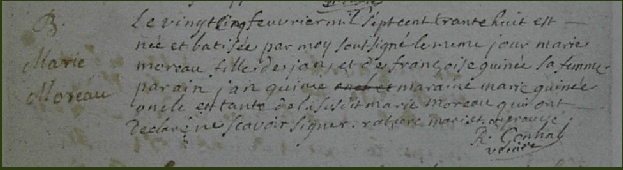 B
Marie
Moreau
Le vingt cinq feuvrier mil sept cent trante huit est
née et batisée par moy sousigné le meme jour marie
moreau fille de jan et de françoise quinée sa femme
parain jan quinée maraine marie quinée
oncle et tante de la susdit marie moreau qui ont
declaré ne scavoir signer: et aprouvé
R. Gonha